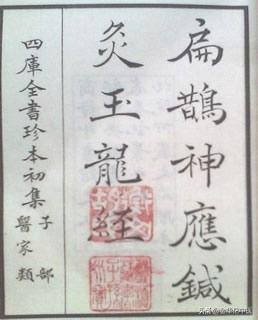 扁鵲神應鍼
灸玉龍經
四庫全書珍本初集子部
醫家類